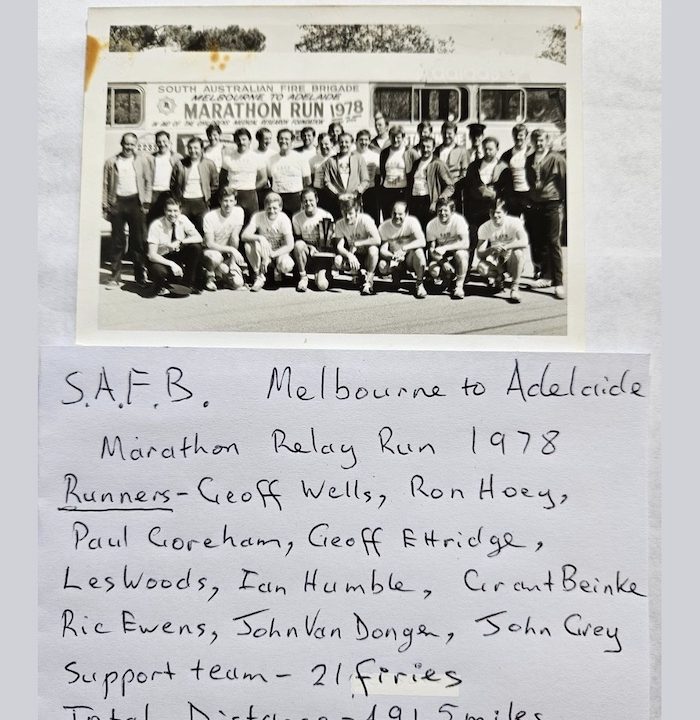 SOUTH AUSTRALIAN FIRE BRIGADE
MELBOURNE TO ADELAIDE
MARATHON RUN 1978
IN AID OF THE CHILDRENS MEDICAL RESEARCH FOUNDATION
S.A.F.B. Melbourne to Adelaide
Marathon Relay Run 1978
Runners - Geoff Wells, Ron Hoey,
Paul Goreham, Geoff Ettridge,
Les Woods, Ian Humble, Grant Beinke
Ric Ewens, John Van Dongen, John Grey
Support team - 21 firies
Total Distance - 491.5 miles